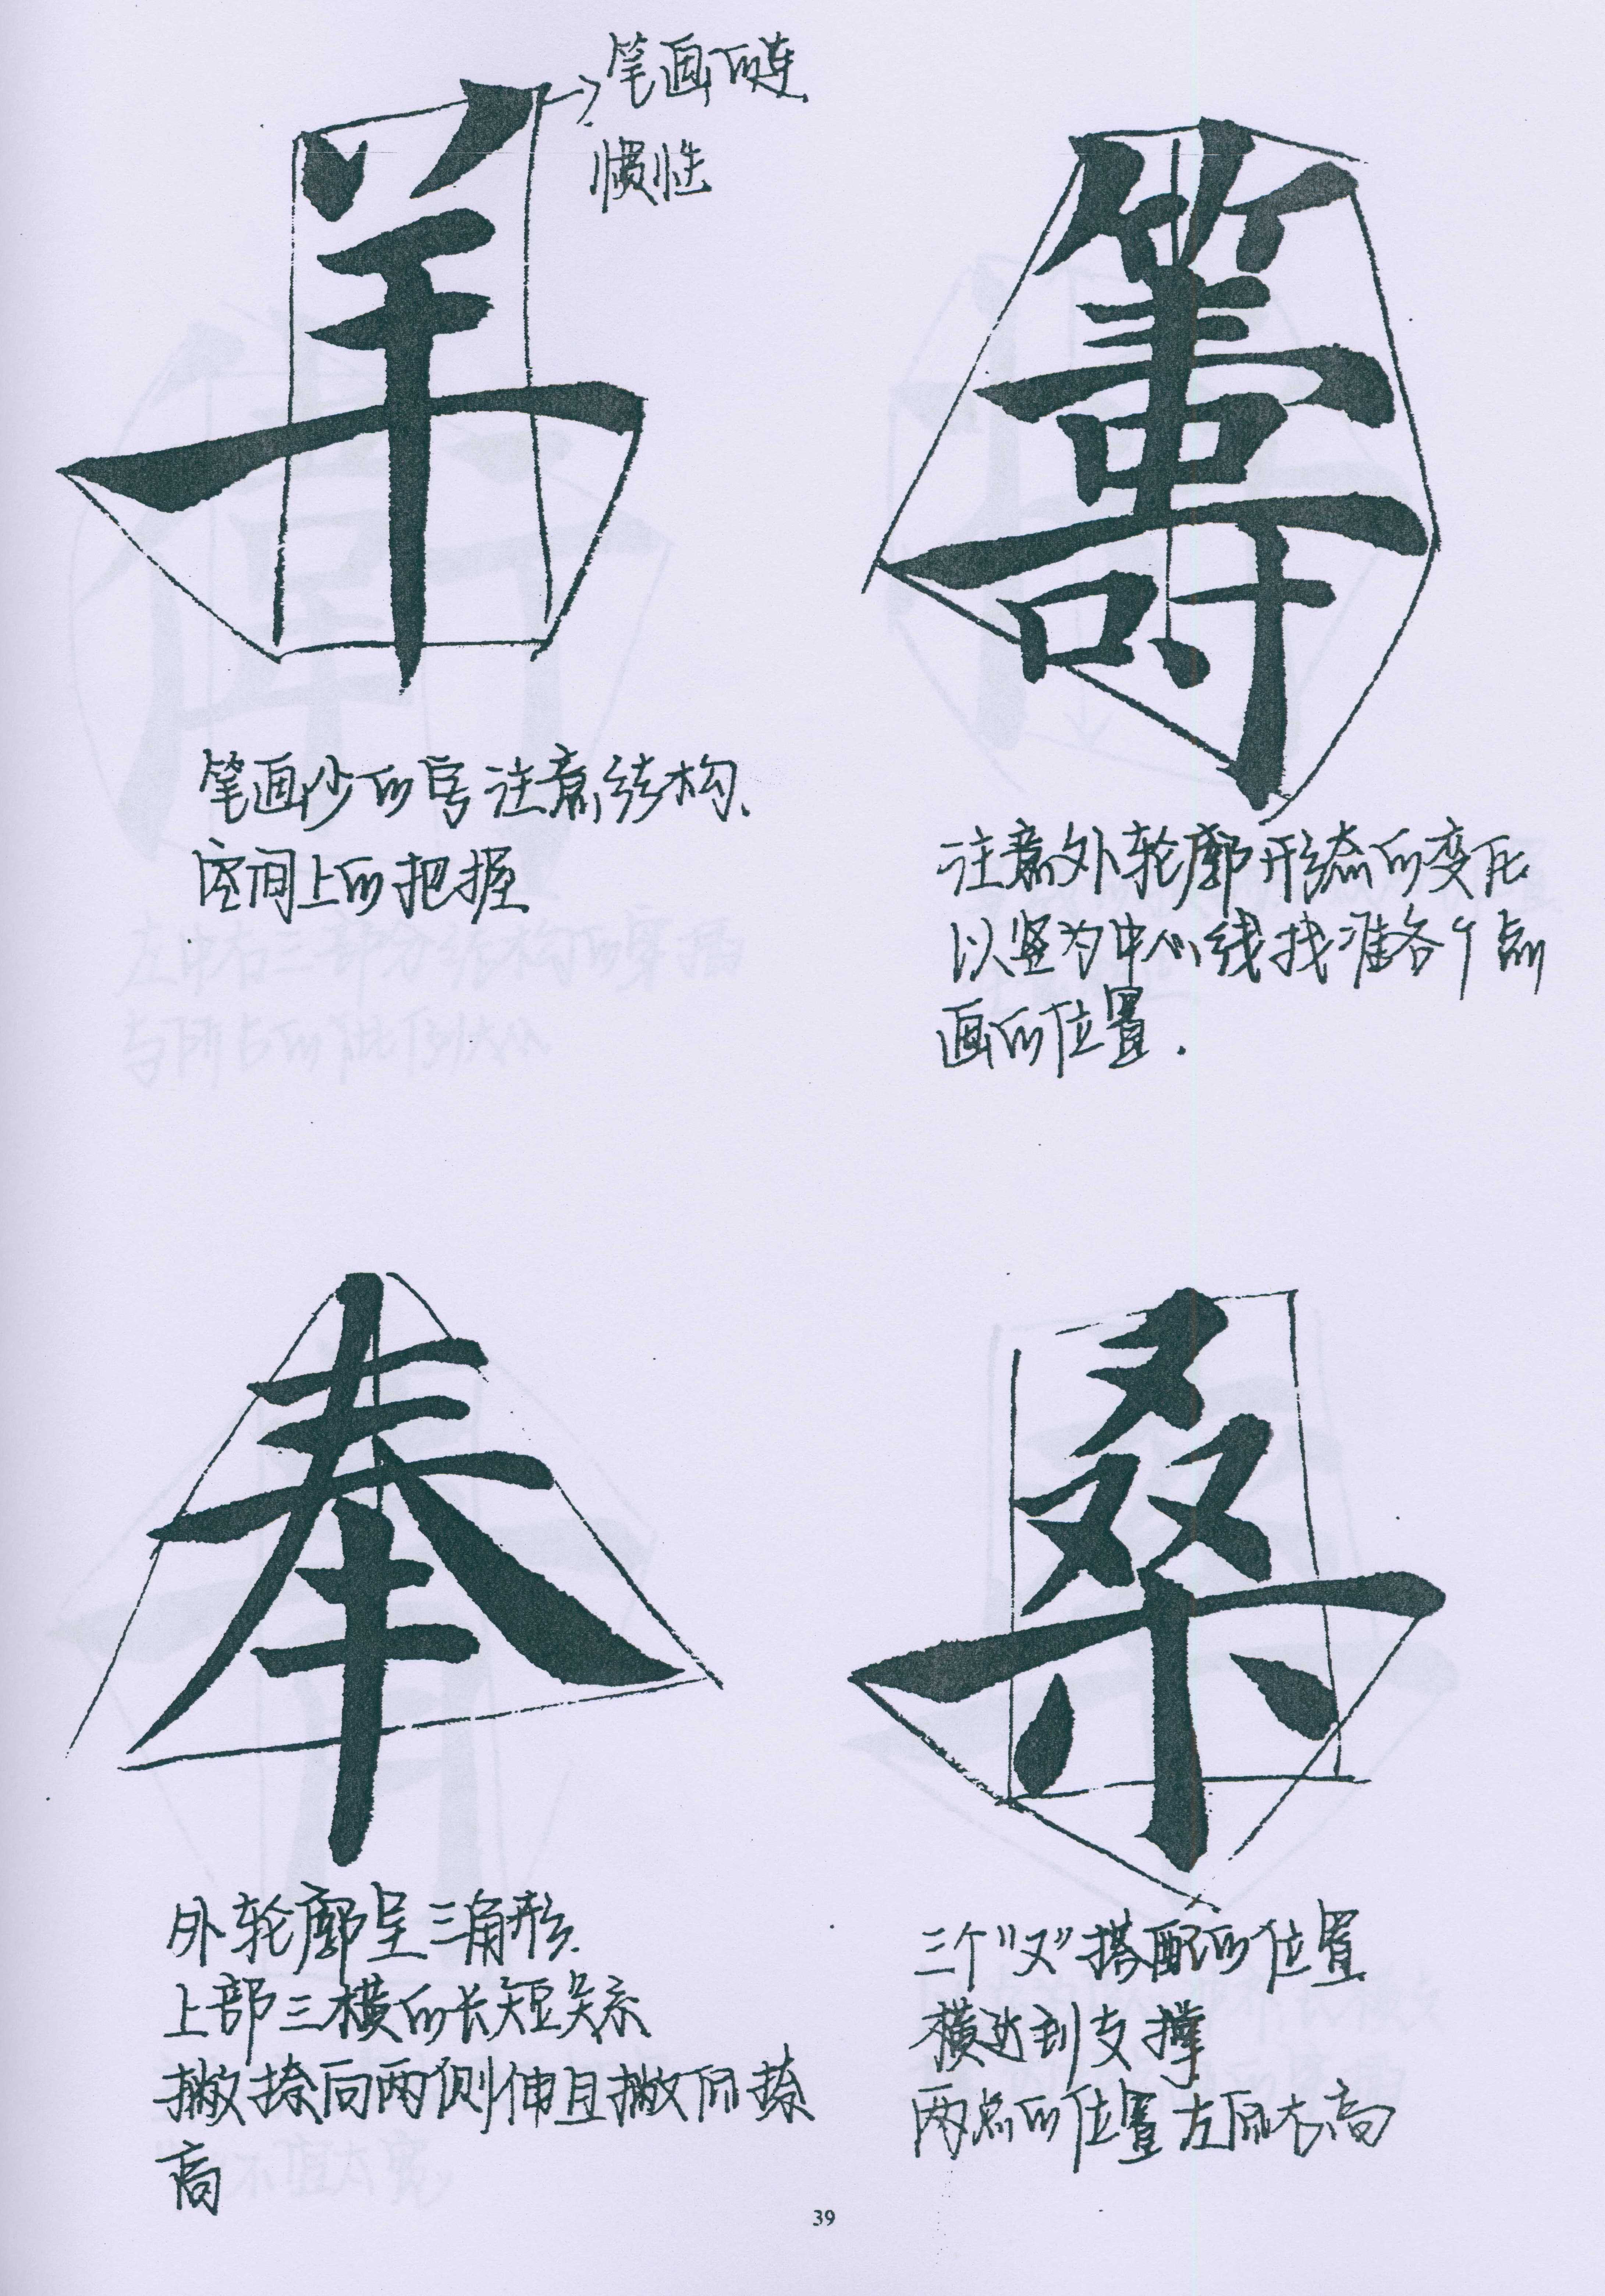 羊
→笔画的连
惯性
笔画少的字注意结构、
空间上的把握
籌
注意外轮廓形态的变化
以竖为中心线找准各个点
画的位置.
奉
外轮廓呈三角形.
上部三横的长短关系
撇捺向两侧伸且撇低捺
高
桑
三个“又”搭配的位置
横起到支撑
两点的位置左低右高
39